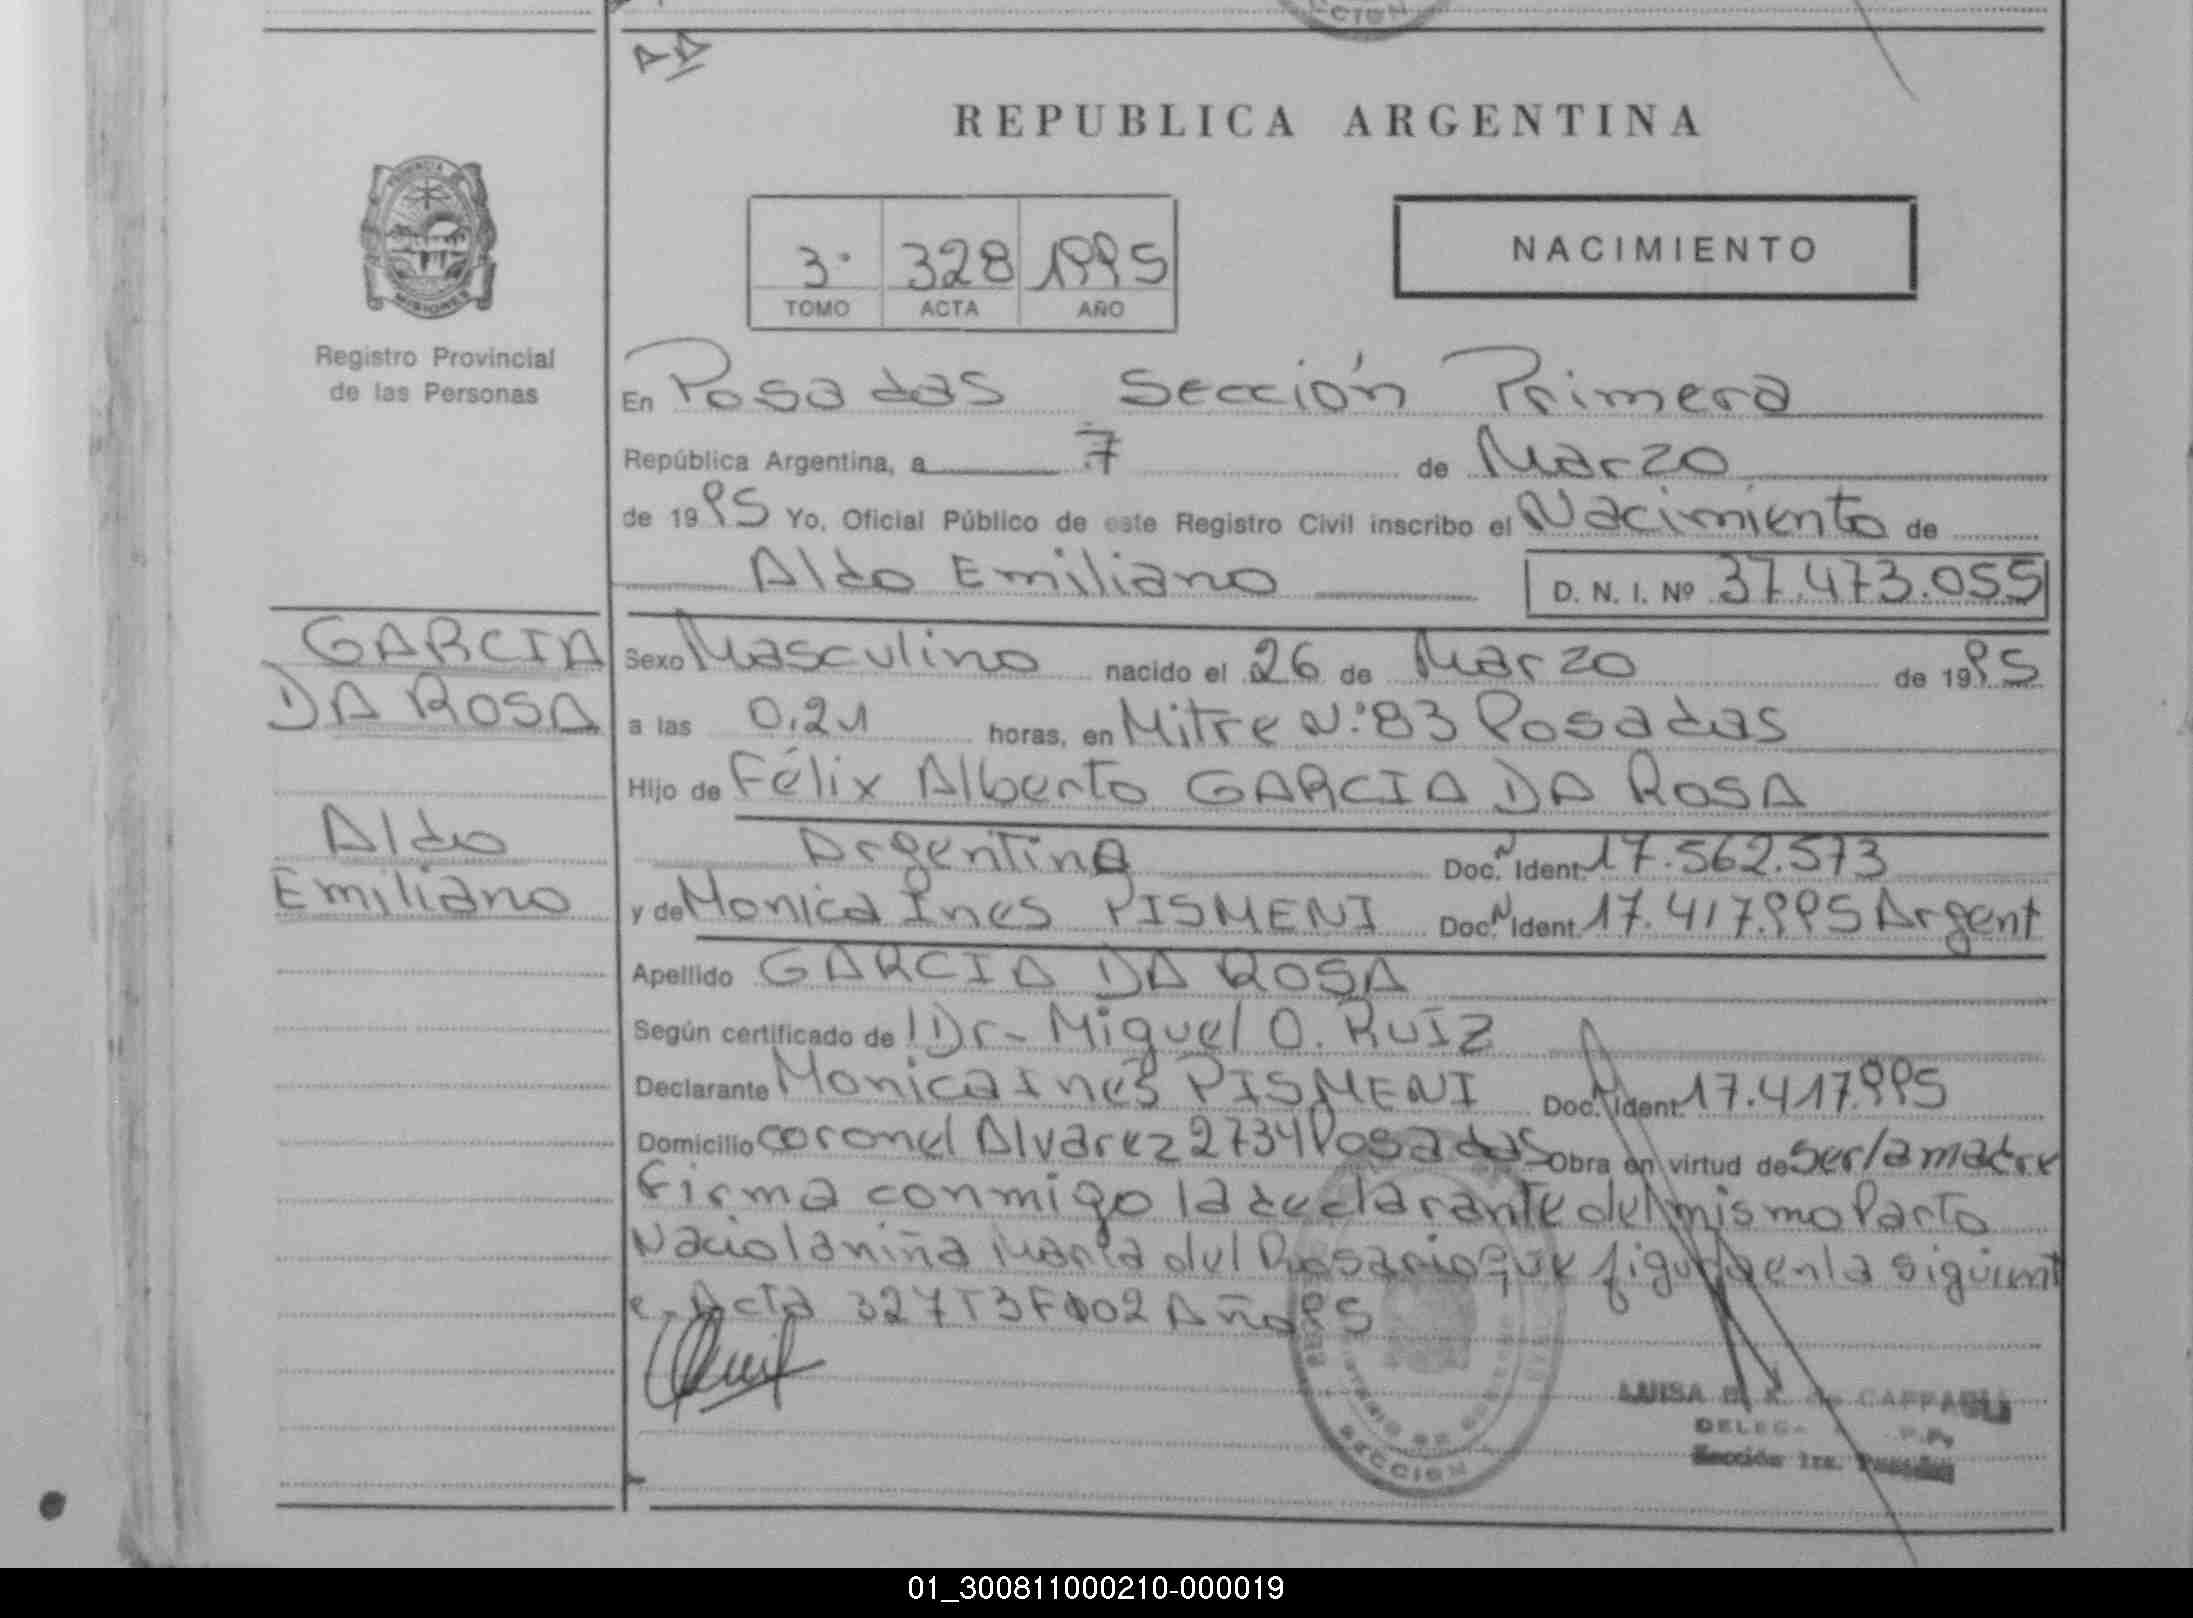 REPUBLICA ARGENTINA
NACIMIENTO
3º 328 1995
TOMO ACTA AÑO
Registro Provincial
de las Personas
En Posadas Sección Primera
República Argentina, a 7 de Marzo
de 1995 Yo, Oficial Público de este Registro Civil inscribo el Nacimiento de
Aldo Emiliano D. N. I. Nº 37.473.055
GARCIA
DA ROSA
Aldo
Emiliano
Sexo Masculino nacido el 26 de Marzo de 1995
a las 0,21 horas, en Mitre N.º 83 Posadas
Hijo de Félix Alberto GARCIA DA ROSA
Argentina Doc. N Ident. 17.562.573
y de Monica Ines PISMENI Doc. N Ident. 17.417.995 Argent
Apellido GARCIA DA ROSA
Según certificado de Dr- Miguel O. RUIZ
Declarante Monica Ines PISMENI Doc. N Ident. 17.417.995
Domicilio coronel Alvarez 2734 Posadas Obra en virtud de ser la madre
firma conmigo la declarante del mismo Parto
Nacio la niña Maria del Rosario que figura en la siguient
e. Acta 327 T3 F102 Año 95
LUISA
DELEG
Sección 1ra. Posadas
SECCION
01_300811000210-000019